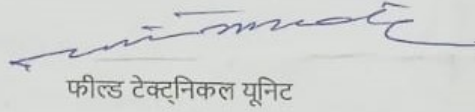 फील्ड टेक्ट्निकल यूनिट